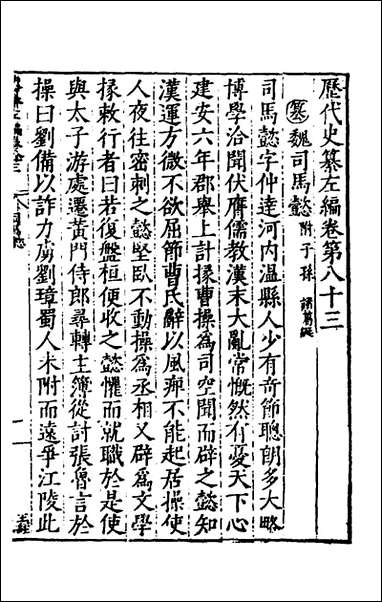 歷代史纂左編卷第八十三
篡 魏司馬懿 附子孫 諸葛誕
司馬懿字仲達河內溫縣人少有奇節聰朗多大略
博學洽聞伏膺儒教漢末大亂常慨然有憂天下心
建安六年郡舉上計掾曹操為司空聞而辟之懿知
漢運方微不欲屈節曹氏辭以風痺不能起居操使
人夜往密刺之懿堅臥不動操為丞相又辟為文學
掾敕行者曰若復盤桓便收之懿懼而就職於是使
與太子游處遷黃門侍郎尋轉主簿從討張魯言於
操曰劉備以詐力虜劉璋蜀人未附而遠爭江陵此